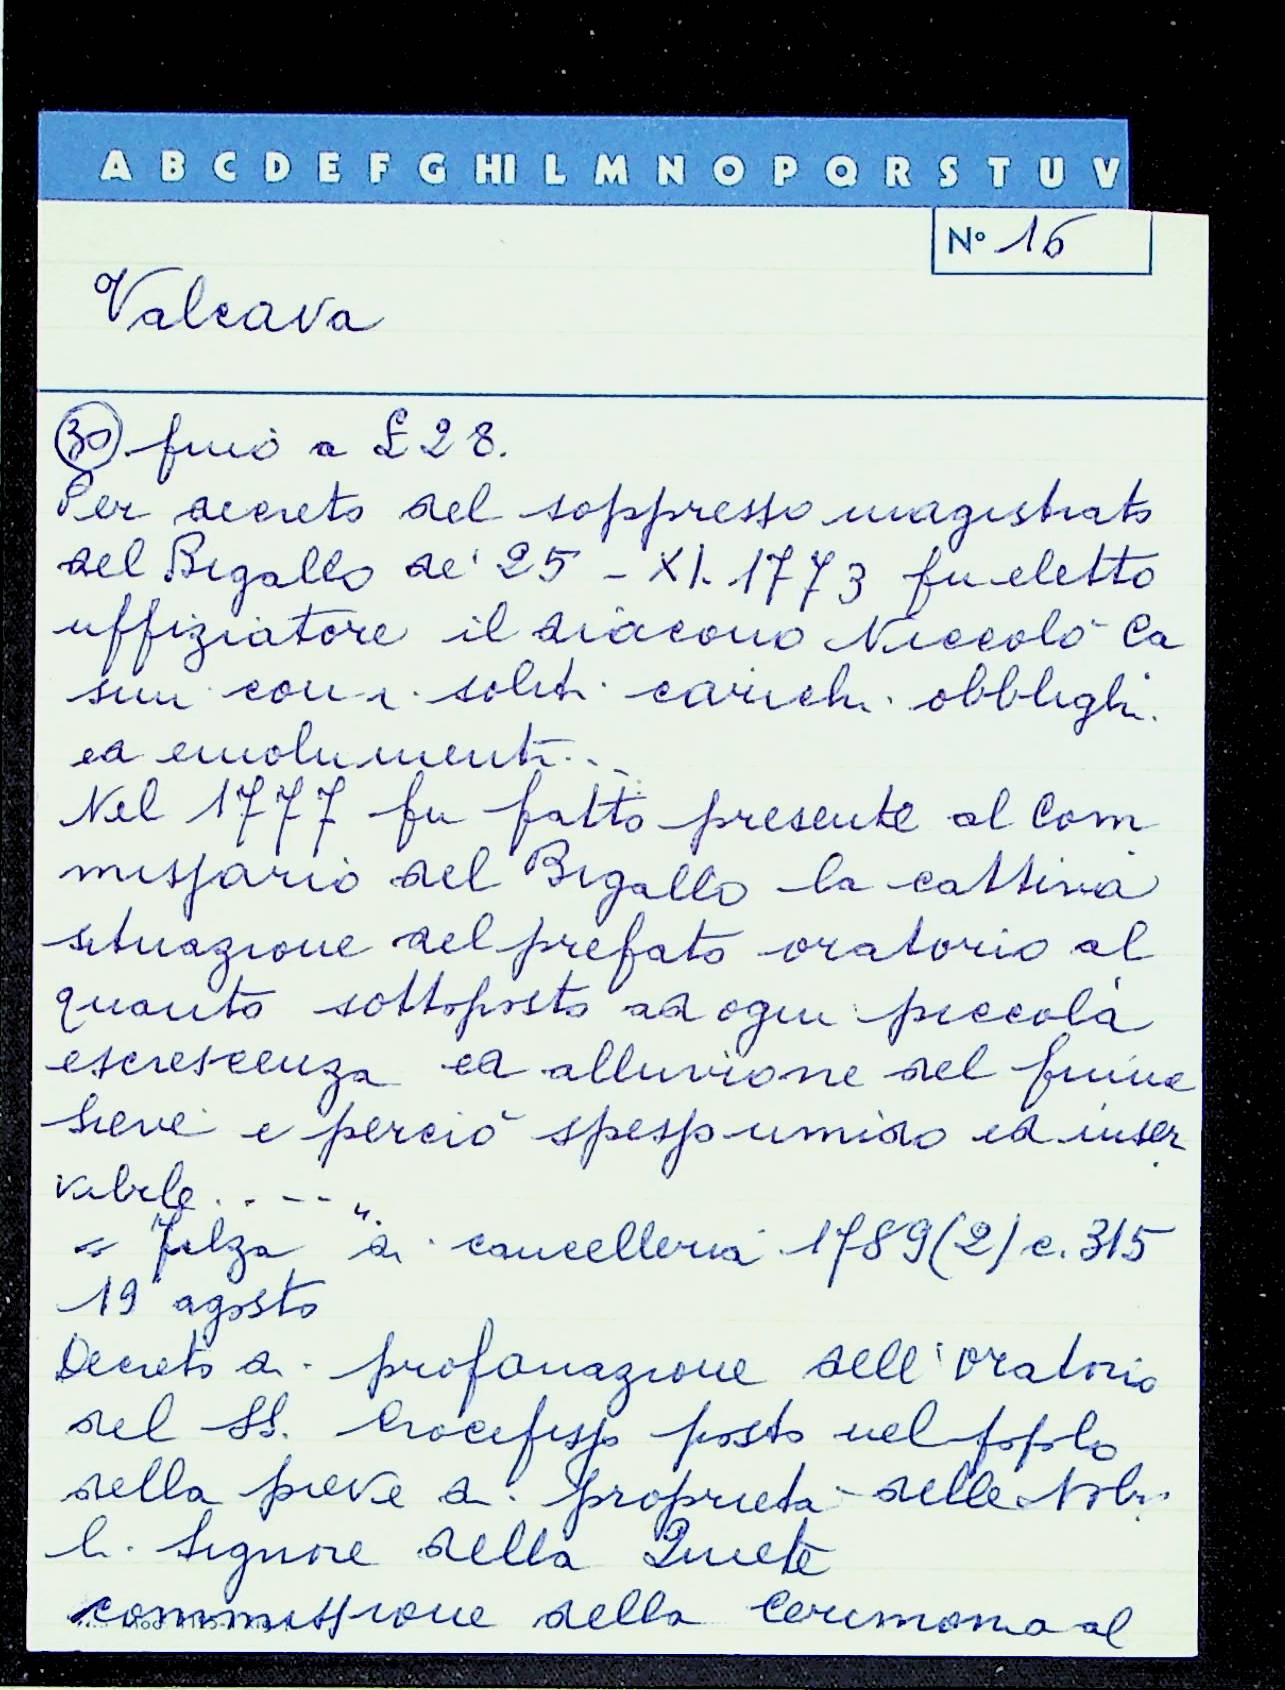 A B C D E F G HI L M N O P Q R S T U V
N° 16
Valcava
30 finò a £ 28.
Per decreto del soppresso magistrato
del Bigallo de' 25 - XI. 1773 fu eletto
uffiziatore il diacono Niccolò Ca
sini con i soliti carichi obblighi
ed emolumenti...
Nel 1777 fu fatto presente al Com
missario del Bigallo la cattiva
situazione del prefato oratorio al
quanto sottoposto ad ogni piccola
escrescenza ed alluvione del fiume
Sieve e perciò spesso umido ed inser
vibile . . - - - "
= Filza di cancelleria 1789 (2) c. 315
19 agosto
Decreto di profanazione dell'oratorio
del SS. Crocifisso posto nel popolo
della pieve di proprietà delle Nobi
li Signore della Quiete
commissione della cerimonia al